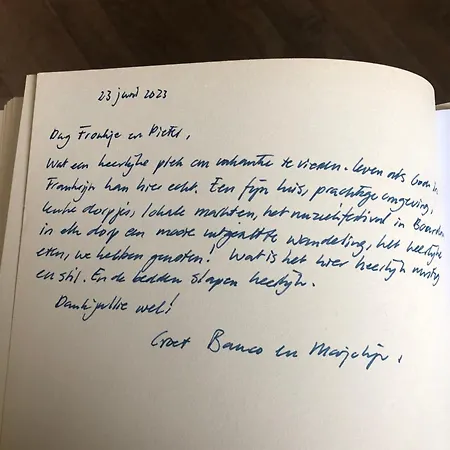 23 juni 2023
Dag Frankje en Pieter,
Wat een heerlijke plek om vakantie te vieren. Leven als God in
Frankrijk kan hier echt. Een fijn huis, prachtige omgeving,
leuke dorpjes, lokale markten, het muziekfestival in
in elk dorp en mooie uitgezette wandeling, het heerlijke
eten, we hebben genoten! Wat is het hier heerlijk rustig
en stil. En de bedden slapen heerlijk.
Dank jullie wel!
Groet en Marjolijn.